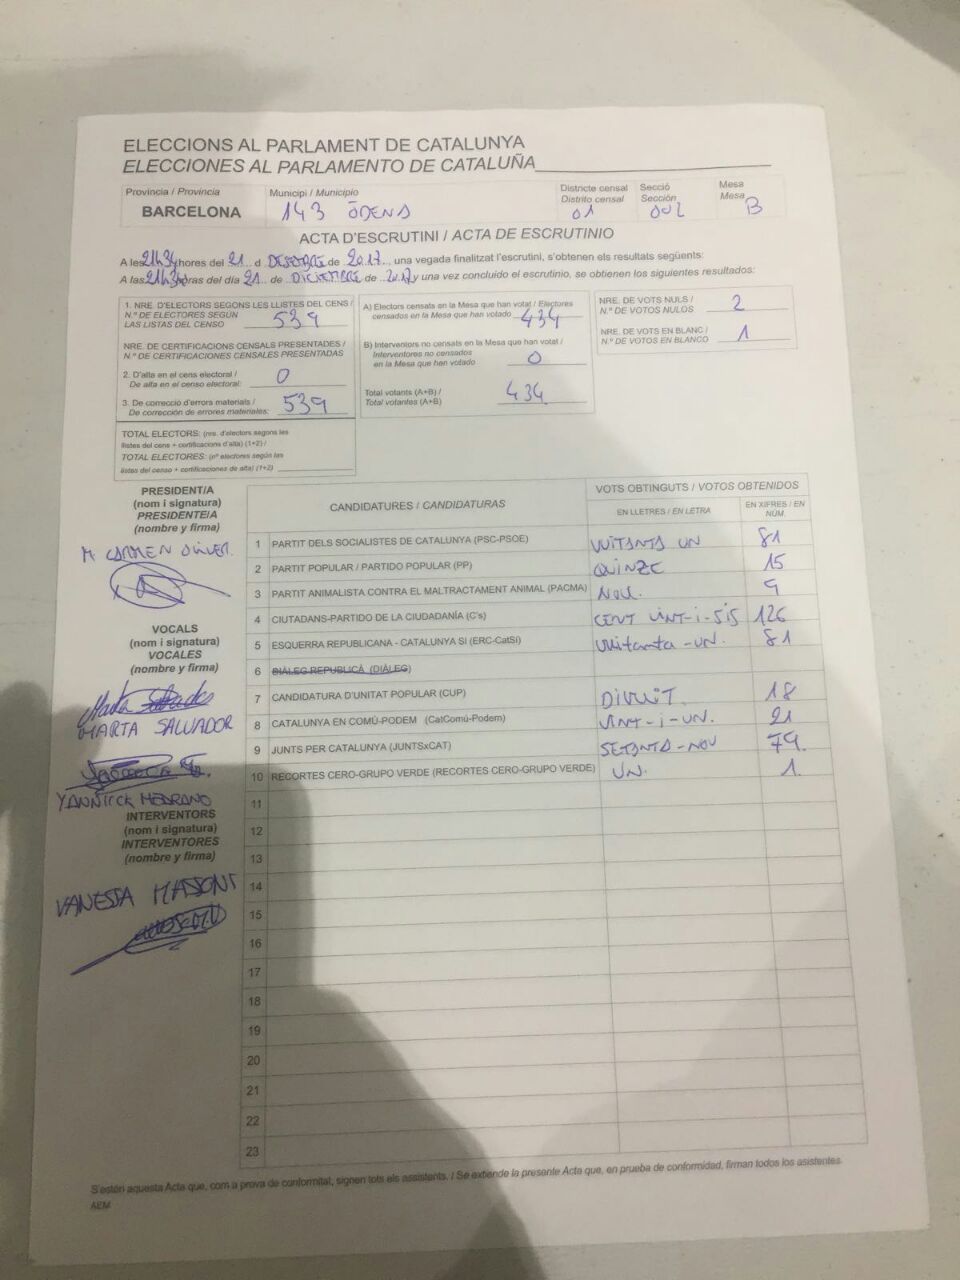 ELECCIONS AL PARLAMENT DE CATALUNYA
ELECCIONES AL PARLAMENTO DE CATALUÑA
Província / Provincia
BARCELONA
Municipi / Municipio
143 ÒDENA
Districte censal
Distrito censal
01
Secció
Sección
002
Mesa
Mesa
B
ACTA D'ESCRUTINI / ACTA DE ESCRUTINIO
A les 21h34 hores del 21 d DESEMBRE de 2017, una vegada finalitzat l'escrutini, s'obtenen els resultats següents:
A las 21h34 horas del día 21 de DICIEMBRE de 2017, una vez concluido el escrutinio, se obtienen los siguientes resultados:
1. NRE. D'ELECTORS SEGONS LES LLISTES DEL CENS /
N.º DE ELECTORES SEGÚN
LAS LISTAS DEL CENSO
539
NRE. DE CERTIFICACIONS CENSALS PRESENTADES /
N.º DE CERTIFICACIONES CENSALES PRESENTADAS
2. D'alta en el cens electoral /
De alta en el censo electoral:
0
3. De correcció d'errors materials /
De corrección de errores materiales:
539
TOTAL ELECTORS: (nre. d'electors segons les
llistes del cens + certificacions d'alta) (1+2) /
TOTAL ELECTORES: (nº electores según las
listas del censo + certificaciones de alta) (1+2)
A) Electors censats en la Mesa que han votat / Electores
censados en la Mesa que han votado
434
B) Interventors no censats en la Mesa que han votat /
Interventores no censados
en la Mesa que han votado
0
Total votants (A+B) /
Total votantes (A+B)
434
NRE. DE VOTS NULS /
N.º DE VOTOS NULOS
2
NRE. DE VOTS EN BLANC /
N.º DE VOTOS EN BLANCO
1
PRESIDENT/A
(nom i signatura)
PRESIDENTE/A
(nombre y firma)
M. CARMEN OLIVER.
VOCALS
(nom i signatura)
VOCALES
(nombre y firma)
MARTA SALVADOR
YANNICK MEDRANO
INTERVENTORS
(nom i signatura)
INTERVENTORES
(nombre y firma)
VANESSA MASSONI
CANDIDATURES / CANDIDATURAS
VOTS OBTINGUTS / VOTOS OBTENIDOS
EN LLETRES / EN LETRA
EN XIFRES / EN NÚM.
1 PARTIT DELS SOCIALISTES DE CATALUNYA (PSC-PSOE) VUITANTA UN 81
2 PARTIT POPULAR / PARTIDO POPULAR (PP) QUINZE 15
3 PARTIT ANIMALISTA CONTRA EL MALTRACTAMENT ANIMAL (PACMA) NOU. 9
4 CIUTADANS-PARTIDO DE LA CIUDADANÍA (C's) CENT VINT-I-SIS 126
5 ESQUERRA REPUBLICANA - CATALUNYA SI (ERC-CatSí) Vuitanta-UN. 81
6 DIÀLEG REPUBLICÀ (DIÀLEG)
7 CANDIDATURA D'UNITAT POPULAR (CUP) DIVUIT. 18
8 CATALUNYA EN COMÚ-PODEM (CatComú-Podem) VINT-I-UN. 21
9 JUNTS PER CATALUNYA (JUNTSxCAT) SETANTA-NOU 79.
10 RECORTES CERO-GRUPO VERDE (RECORTES CERO-GRUPO VERDE) UN. 1.
11
12
13
14
15
16
17
18
19
20
21
22
23
S'estén aquesta Acta que, com a prova de conformitat, signen tots els assistents. / Se extiende la presente Acta que, en prueba de conformidad, firman todos los asistentes.
AEM